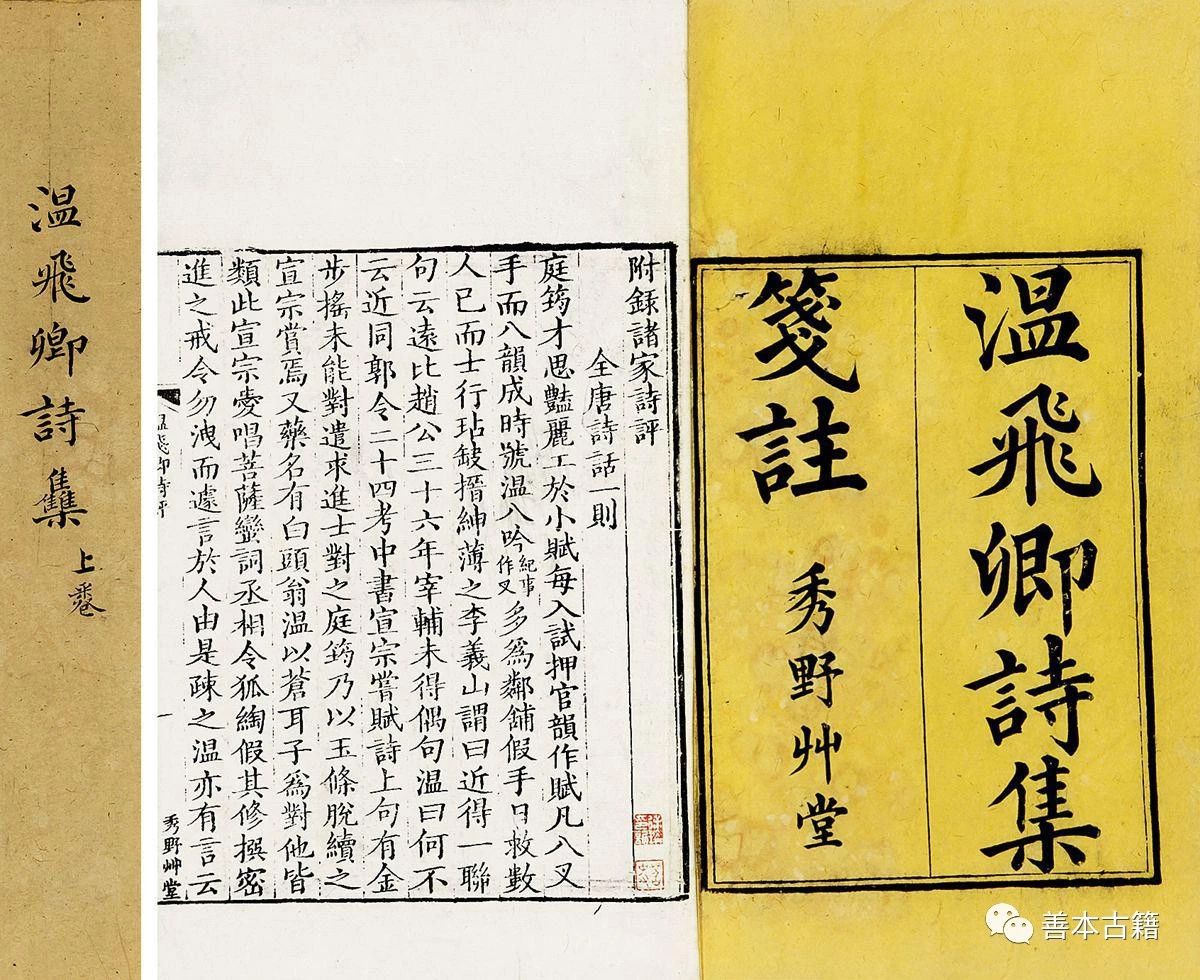 温飛卿詩集
箋註
秀野艸堂
附錄諸家詩評
全唐詩話一則
庭筠才思豔麗工於小賦每入試押官韻作賦凡八叉
手而八韻成時號温八吟紀事作叉多爲鄰舖假手日救數
人已而士行玷缺搢紳薄之李義山謂曰近得一聯
句云遠比趙公三十六年宰輔未得偶句温曰何不
云近同郭令二十四考中書宣宗嘗賦詩上句有金
步搖未能對遣求進士對之庭筠乃以玉條脫續之
宣宗賞焉又藥名有白頭翁温以蒼耳子爲對他皆
類此宣宗愛唱菩薩蠻詞丞相令狐綯假其修撰密
進之戒令勿洩而遽言於人由是疎之温亦有言云
温飛卿詩評
一
秀野艸堂
温飛卿詩集 上
善本古籍